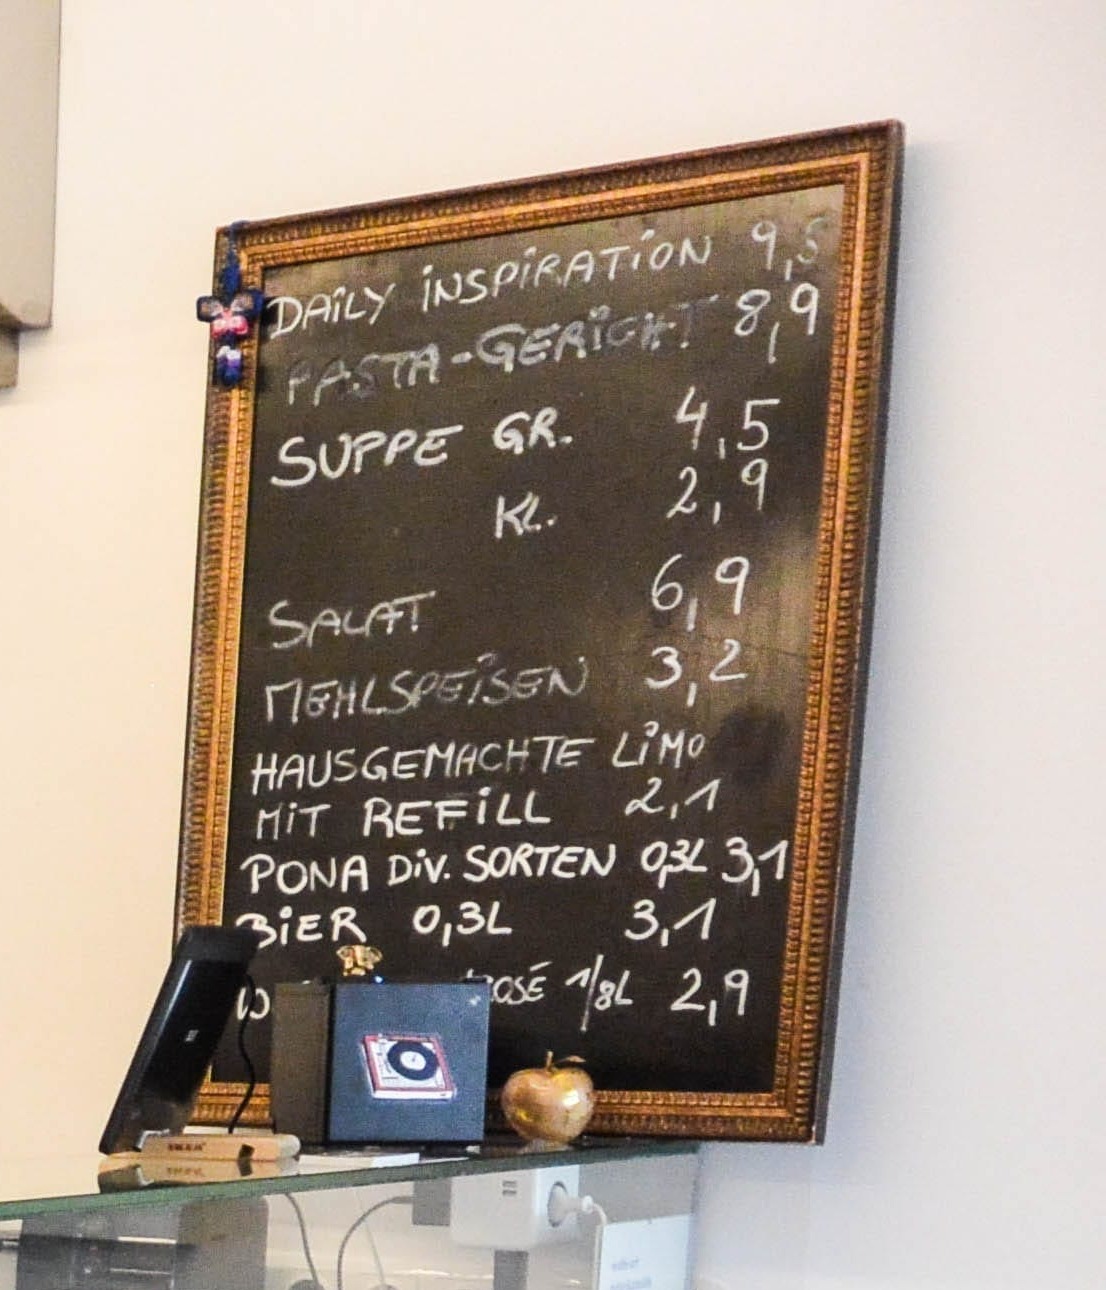 DAiLY iNSPiRATiON 9,5
PASTA-GERiCHT 8,9
SUPPE GR. 4,5
KL. 2,9
SALAT 6,9
MEHLSPEiSEN 3,2
HAUSGEMACHTE LiMO
MiT REFiLL 2,1
PONA DiV. SORTEN 0,3L 3,1
BiER 0,3L 3,1
ROSÉ 1/8L 2,9